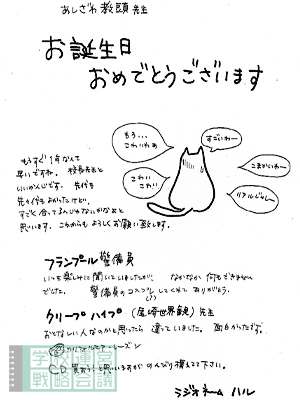 あしざわ教頭先生
お誕生日
おめでとうございます
もう...
こわいわぁ
すごいわー
こまかいわー
こわい
こわい
リアルじゃん〜
もうすぐ1年なんて
早いですね。校長先生と
いいかんじです。先代も
先々代もよかったけど、
すごく合ってるんじゃないかなぁと
思います。これからもよろしくお願い致します。
フランプール警備員
いつも楽しみに聞いていましたが、なかなか何もできません
でした。警備員のコスプレ(?)してくれてありがとう。
クリープハイプ(尾崎世界観)先生
おとなしい人なのかと思ったら違っていました。面白かったです。
CD買おう!と思いますがのんびり構えてて下さい。
ラジオネーム ハル
学校運営
戦略会議